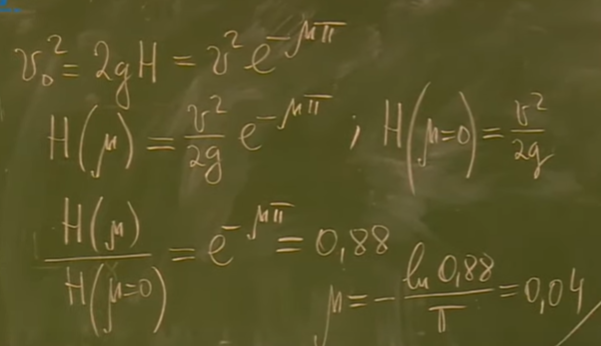 v₀² = 2gH = v² e^{-μπ}
H(μ) = v²/2g e^{-μπ} ; H(μ=0) = v²/2g
H(μ)/H(μ=0) = e^{-μπ} = 0,88
μ = - ln 0,88/π = 0,04